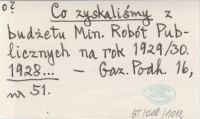 o?
Co zyskaliśmy z
budżetu Min. Robót Pub-
licznych na rok 1929/30.
1928... — Gaz. Podh. 16,
nr 51.